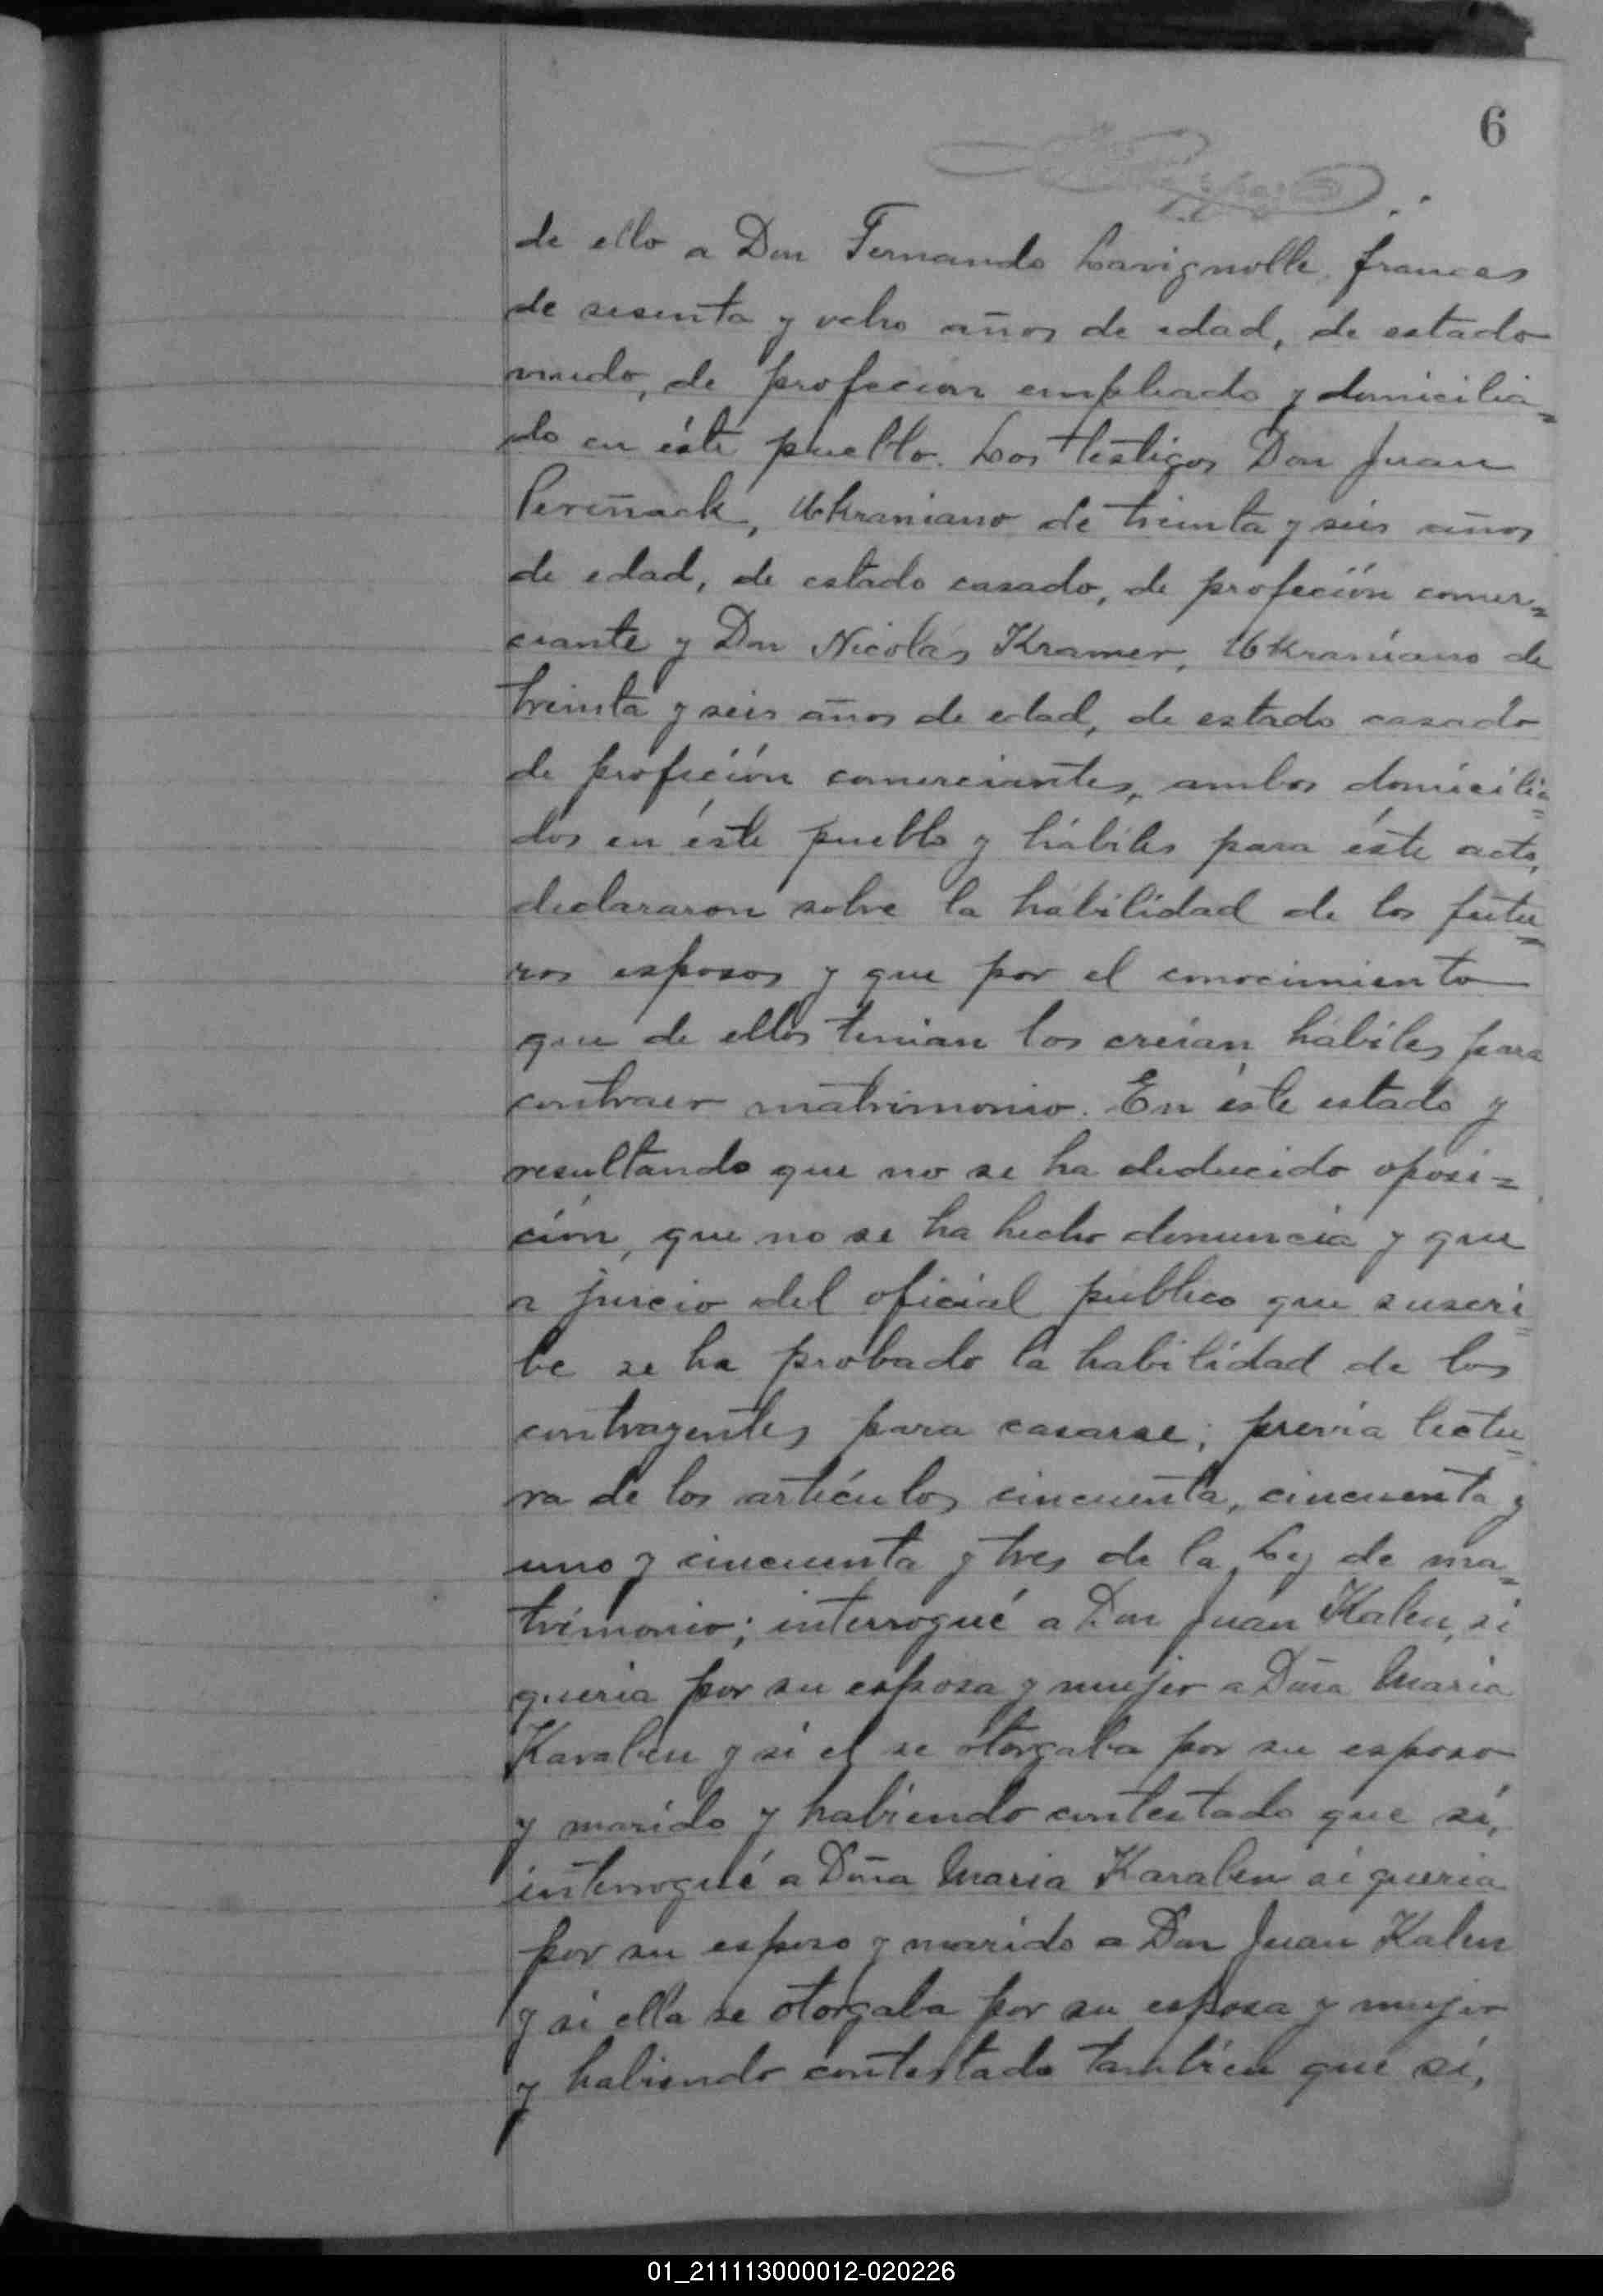 6
de ello a Don Fernando Lavignolle, frances
de sesenta y ocho años de edad, de estado
viudo, de profecion empleado y domicilia=
do en éste pueblo. Los testigos Don Juan
Pereñack, Ukraniano de treinta y seis años
de edad, de estado casado, de profeción comer=
ciante y Don Nicolás Kramer, Ukraniano de
treinta y seis años de edad, de estado casado
de profeción comerciantes, ambos domicilia=
dos en éste pueblo y hábiles para éste acto,
declararon sobre la habilidad de los futu=
ros esposos y que por el conocimiento
que de ellos tenian los creían hábiles para
contraer matrimonio. En éste estado y
resultando que no se ha deducido oposi=
ción, que no se ha hecho denuncia y que
a juicio del oficial publico que suscri=
be se ha probado la habilidad de los
contrayentes para casarse; previa lectu=
ra de los artículos cincuenta, cincuenta y
uno y cincuenta y tres de la Ley de ma=
trimonio; interrogué a Don Juan Kalen, si
queria por su esposa y mujer a Doña Maria
Karaben y si el se otorgaba por su esposo
y marido y habiendo contestado que sí,
interrogué a Doña Maria Karaben si queria
por su esposo y marido a Don Juan Kalen
y si ella se otorgaba por su esposa y mujer
y habiendo contestado tambien que sí,
01_211113000012-020226